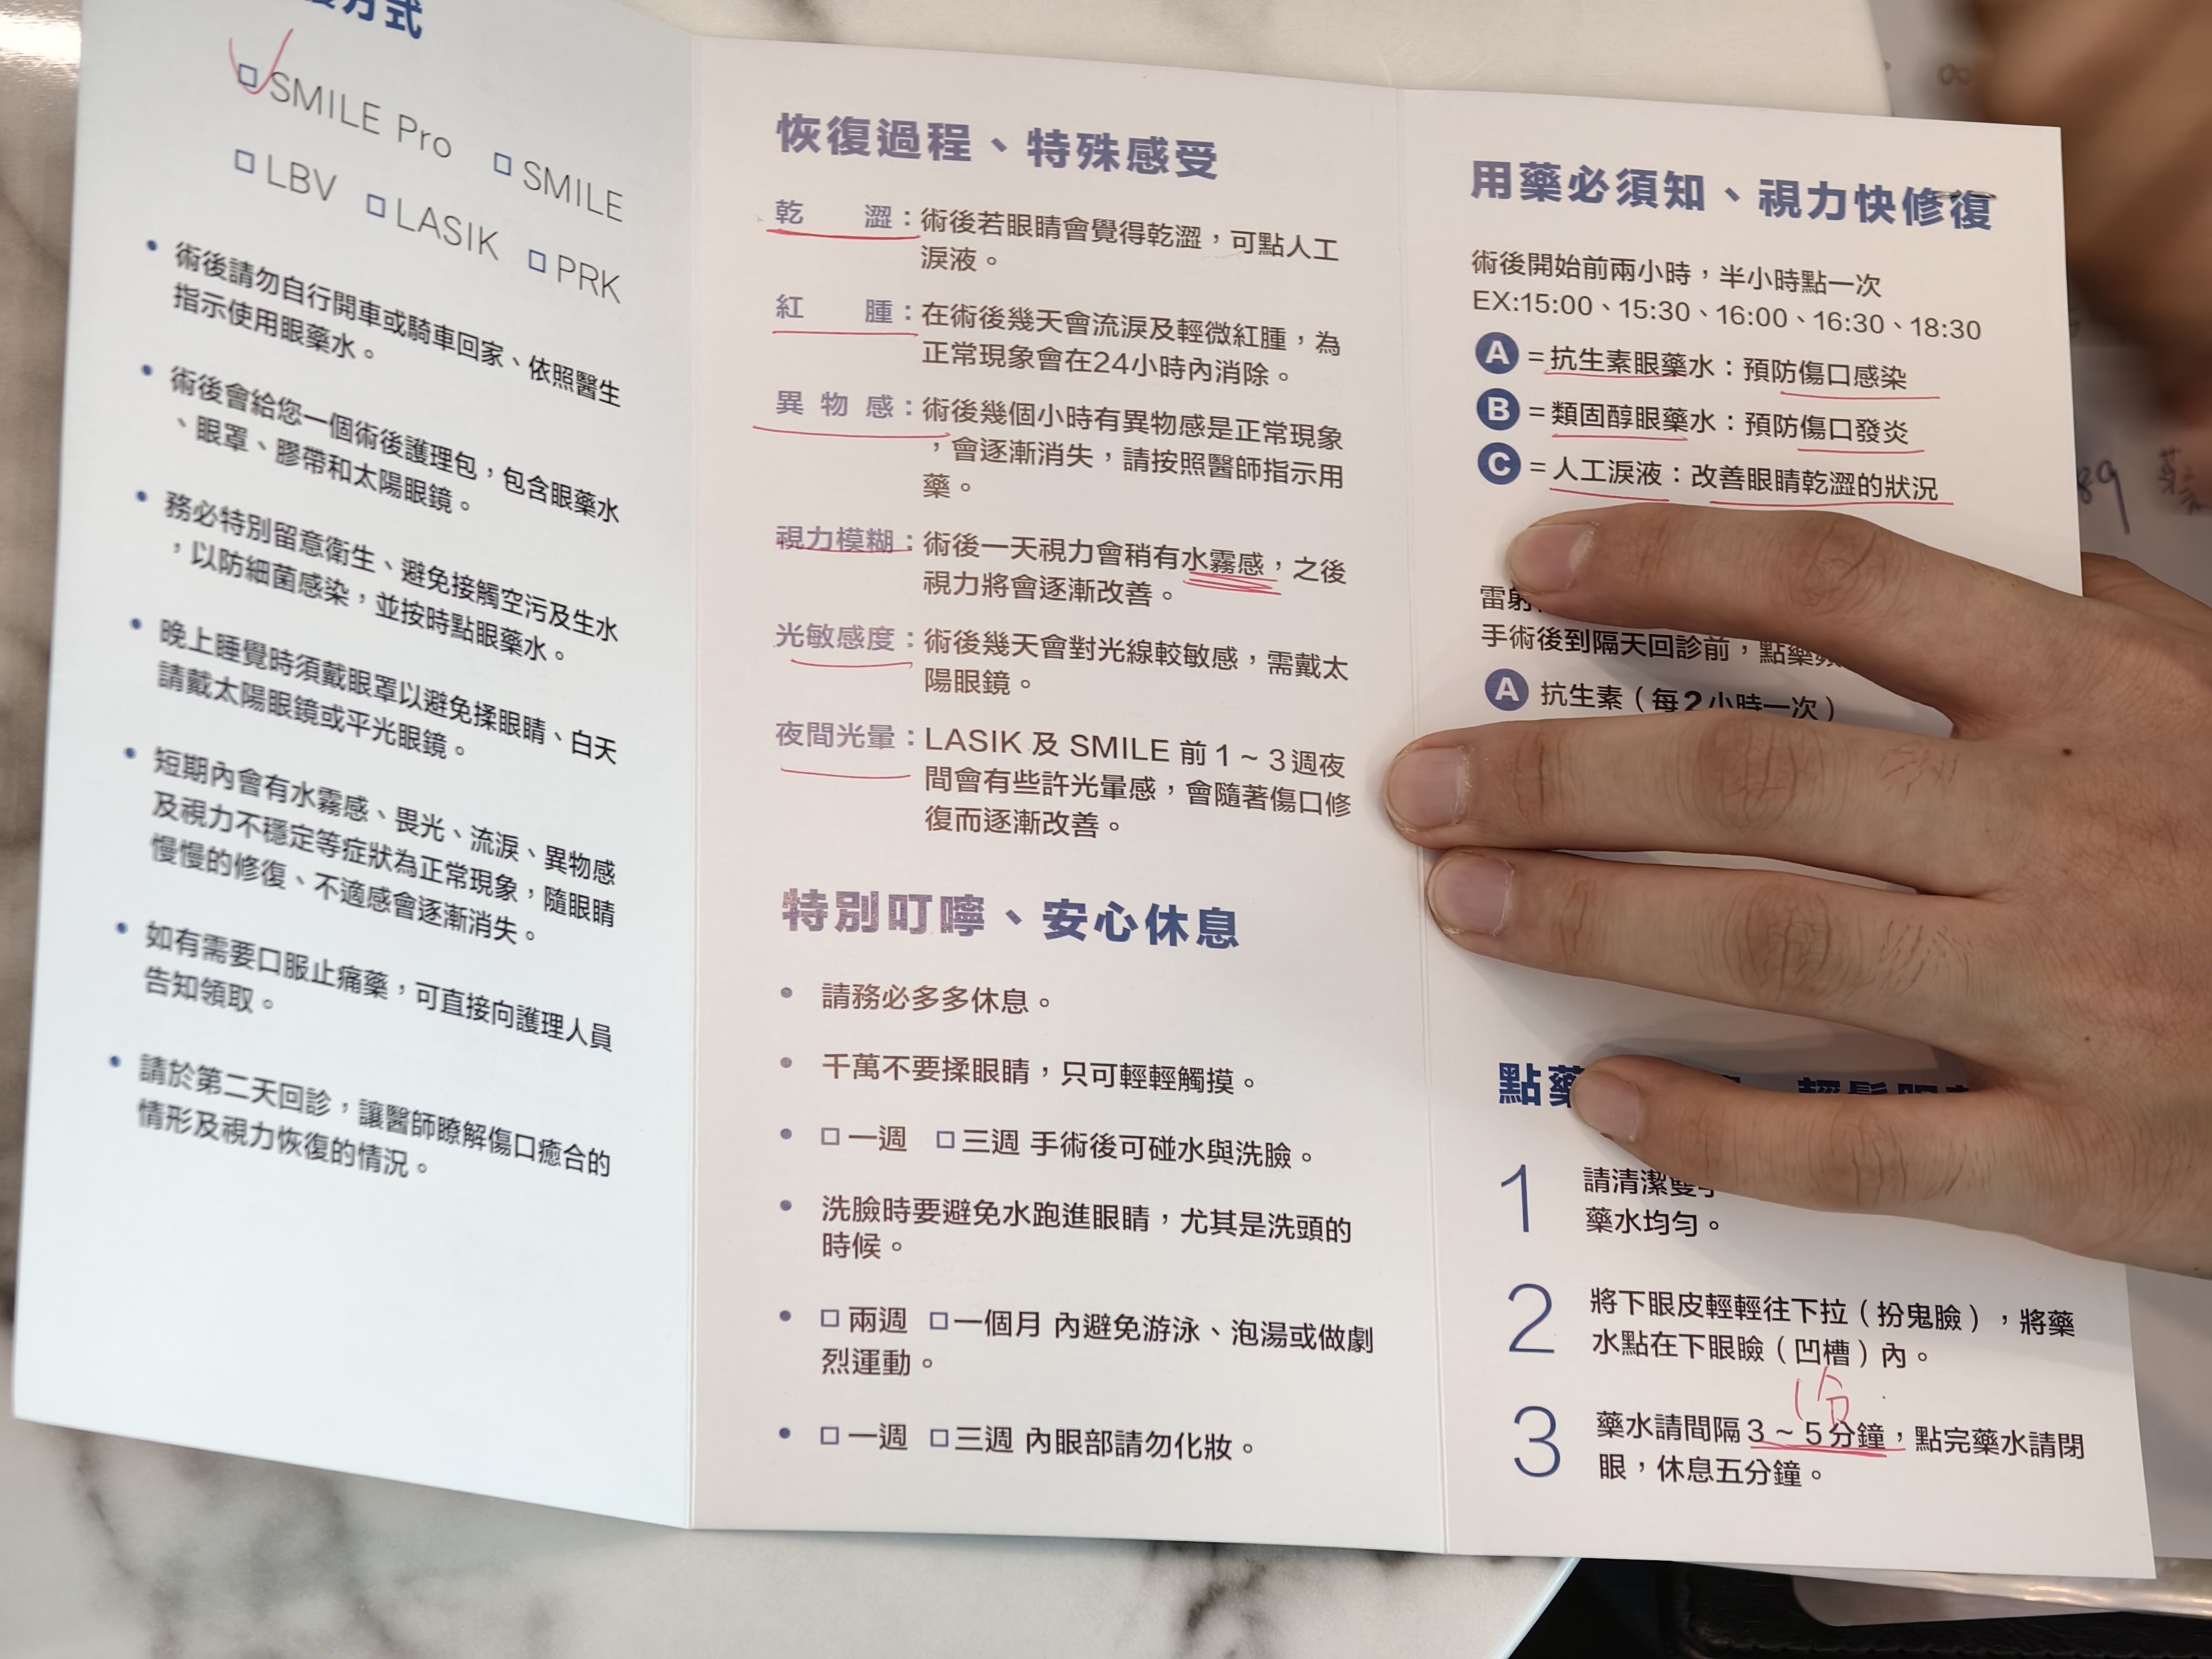 方式
SMILE Pro
SMILE
LBV
LASIK
PRK
術後請勿自行開車或騎車回家、依照醫生
指示使用眼藥水。
術後會給您一個術後護理包，包含眼藥水
、眼罩、膠帶和太陽眼鏡。
務必特別留意衛生、避免接觸空污及生水
，以防細菌感染，並按時點眼藥水。
晚上睡覺時須戴眼罩以避免揉眼睛、白天
請戴太陽眼鏡或平光眼鏡。
短期內會有水霧感、畏光、流淚、異物感
及視力不穩定等症狀為正常現象，隨眼睛
慢慢的修復、不適感會逐漸消失。
如有需要口服止痛藥，可直接向護理人員
告知領取。
請於第二天回診，讓醫師瞭解傷口癒合的
情形及視力恢復的情況。
恢復過程、特殊感受
乾澀：術後若眼睛會覺得乾澀，可點人工
淚液。
紅腫：在術後幾天會流淚及輕微紅腫，為
正常現象會在24小時內消除。
異物感：術後幾個小時有異物感是正常現象
，會逐漸消失，請按照醫師指示用
藥。
視力模糊：術後一天視力會稍有水霧感，之後
視力將會逐漸改善。
光敏感度：術後幾天會對光線較敏感，需戴太
陽眼鏡。
夜間光暈：LASIK 及 SMILE 前1~3週夜
間會有些許光暈感，會隨著傷口修
復而逐漸改善。
特別叮嚀、安心休息
請務必多多休息。
千萬不要揉眼睛，只可輕輕觸摸。
一週 三週 手術後可碰水與洗臉。
洗臉時要避免水跑進眼睛，尤其是洗頭的
時候。
兩週 一個月 內避免游泳、泡湯或做劇
烈運動。
一週 三週 內眼部請勿化妝。
用藥必須知、視力快修復
術後開始前兩小時，半小時點一次
EX:15:00、15:30、16:00、16:30、18:30
A =抗生素眼藥水：預防傷口感染
B =類固醇眼藥水：預防傷口發炎
C =人工淚液：改善眼睛乾澀的狀況
雷射
手術後到隔天回診前，點藥頻
A 抗生素（每2小時一次）
點藥
1 請清潔雙手
藥水均勻。
2 將下眼皮輕輕往下拉（扮鬼臉），將藥
水點在下眼瞼（凹槽）內。
1分
3 藥水請間隔3~5分鐘，點完藥水請閉
眼，休息五分鐘。